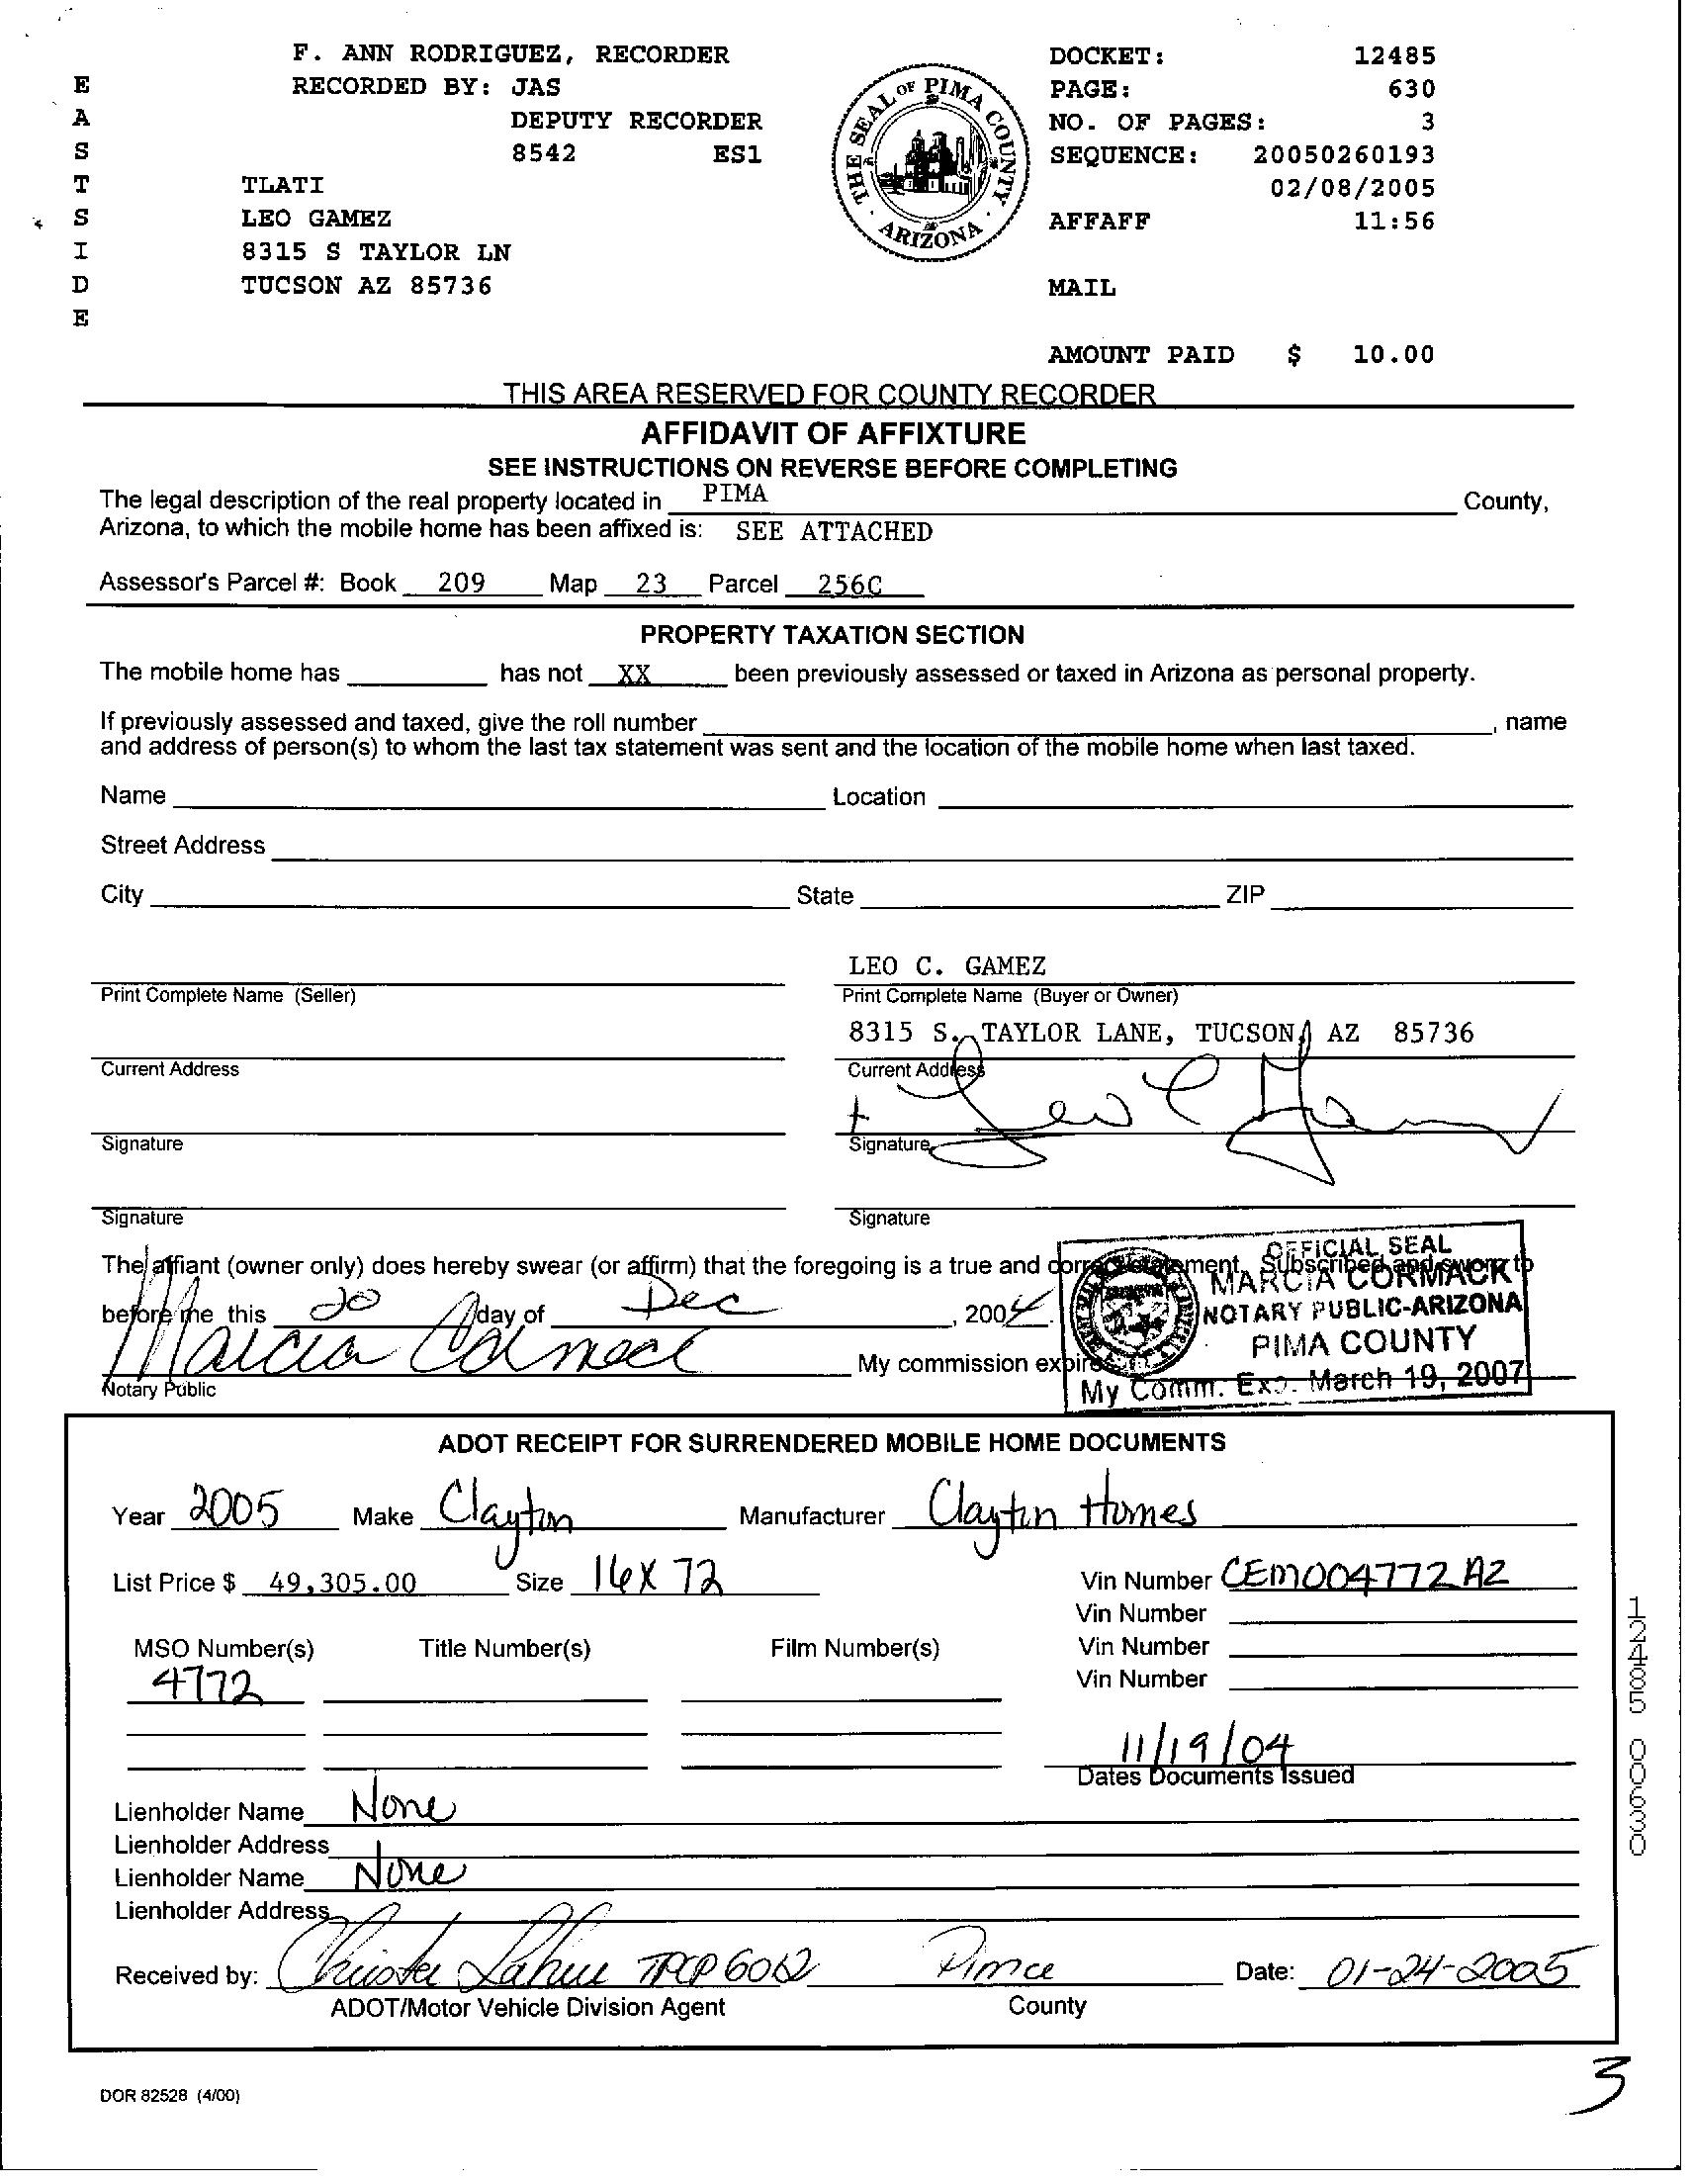 F. ANN RODRIGUEZ, RECORDER
RECORDED BY: JAS
DEPUTY RECORDER
8542 ES1
EASTSIDE
TLATI
LEO GAMEZ
8315 S TAYLOR LN
TUCSON AZ 85736
THE SEAL OF PIMA COUNTY
ARIZONA
DOCKET: 12485
PAGE: 630
NO. OF PAGES: 3
SEQUENCE: 20050260193
02/08/2005
AFFAFF 11:56
MAIL
AMOUNT PAID $ 10.00
THIS AREA RESERVED FOR COUNTY RECORDER
AFFIDAVIT OF AFFIXTURE
SEE INSTRUCTIONS ON REVERSE BEFORE COMPLETING
The legal description of the real property located in PIMA County,
Arizona, to which the mobile home has been affixed is: SEE ATTACHED
Assessor's Parcel #: Book 209 Map 23 Parcel 256C
PROPERTY TAXATION SECTION
The mobile home has has not XX been previously assessed or taxed in Arizona as personal property.
If previously assessed and taxed, give the roll number , name
and address of person(s) to whom the last tax statement was sent and the location of the mobile home when last taxed.
Name Location
Street Address
City State ZIP
LEO C. GAMEZ
Print Complete Name (Seller) Print Complete Name (Buyer or Owner)
8315 S. TAYLOR LANE, TUCSON, AZ 85736
Current Address Current Address
Leo C Gamez
Signature Signature
Signature Signature
The affiant (owner only) does hereby swear (or affirm) that the foregoing is a true and correct statement. Subscribed and sworn to
before me this 20 day of Dec , 2004.
Marcia Cormack My commission expires
Notary Public
OFFICIAL SEAL
MARCIA CORMACK
NOTARY PUBLIC-ARIZONA
PIMA COUNTY
My Comm. Exp. March 19, 2007
ADOT RECEIPT FOR SURRENDERED MOBILE HOME DOCUMENTS
Year 2005 Make Clayton Manufacturer Clayton Homes
List Price $ 49,305.00 Size 16X 72 Vin Number CEM004772AZ
Vin Number
MSO Number(s) Title Number(s) Film Number(s) Vin Number
4772 Vin Number
11/19/04
Dates Documents Issued
Lienholder Name None
Lienholder Address
Lienholder Name None
Lienholder Address
Received by: Pima Date: 01-24-2005
ADOT/Motor Vehicle Division Agent County
12485 00630
DOR 82528 (4/00)
3